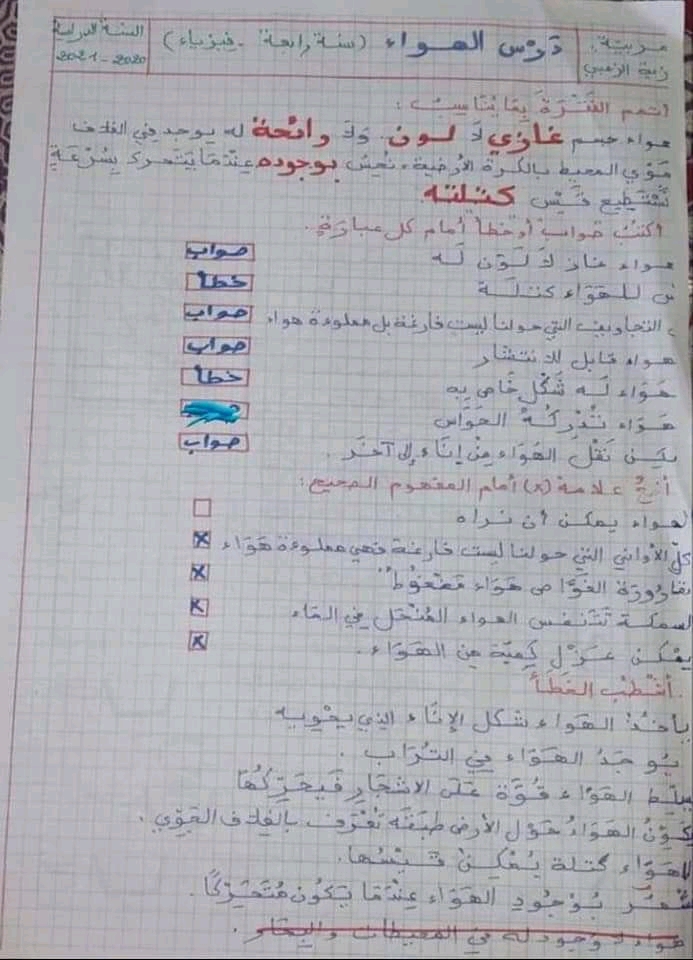 مربية: درس الهواء (سنة رابعة - فيزياء) السنة الدراسية
2020-2021
أتمم الفقرة بما يناسب:
هواء جسم غازي لا لون ولا رائحة له يوجد في الغلاف
الجوي المحيط بالكرة الأرضية، نحس بوجوده عندما يتحرك بسرعة
نستطيع قيس كتلته
أكتب صواب أو خطأ أمام كل عبارة:
هواء غاز لا لون له صواب
للهواء كتلة خطأ
التجاويف التي حولنا ليست فارغة بل مملوءة هواء صواب
هواء قابل للانتشار صواب
هواء له شكل خاص به خطأ
هواء تدركه الحواس
يمكن نقل الهواء من إناء إلى آخر. صواب
أضع علامة (x) أمام المفهوم الصحيح:
الهواء يمكن أن نراه
كل الأواني التي حولنا ليست فارغة فهي مملوءة هواء x
بقارورة الغواص هواء مضغوط x
السمكة تتنفس الهواء المنحل في الماء x
يمكن عزل كمية من الهواء. x
أشطب الخطأ
يأخذ الهواء شكل الإناء الذي يحويه
يوجد الهواء في التراب.
يسلط الهواء قوة على الأشجار فيحركها
يكون الهواء حول الأرض طبقة تعرف بالغلاف الجوي.
للهواء كتلة يمكن قيسها.
نشعر بوجود الهواء عندما يكون متحركا.
هواء لا وجود له في المحيطات والبحار.